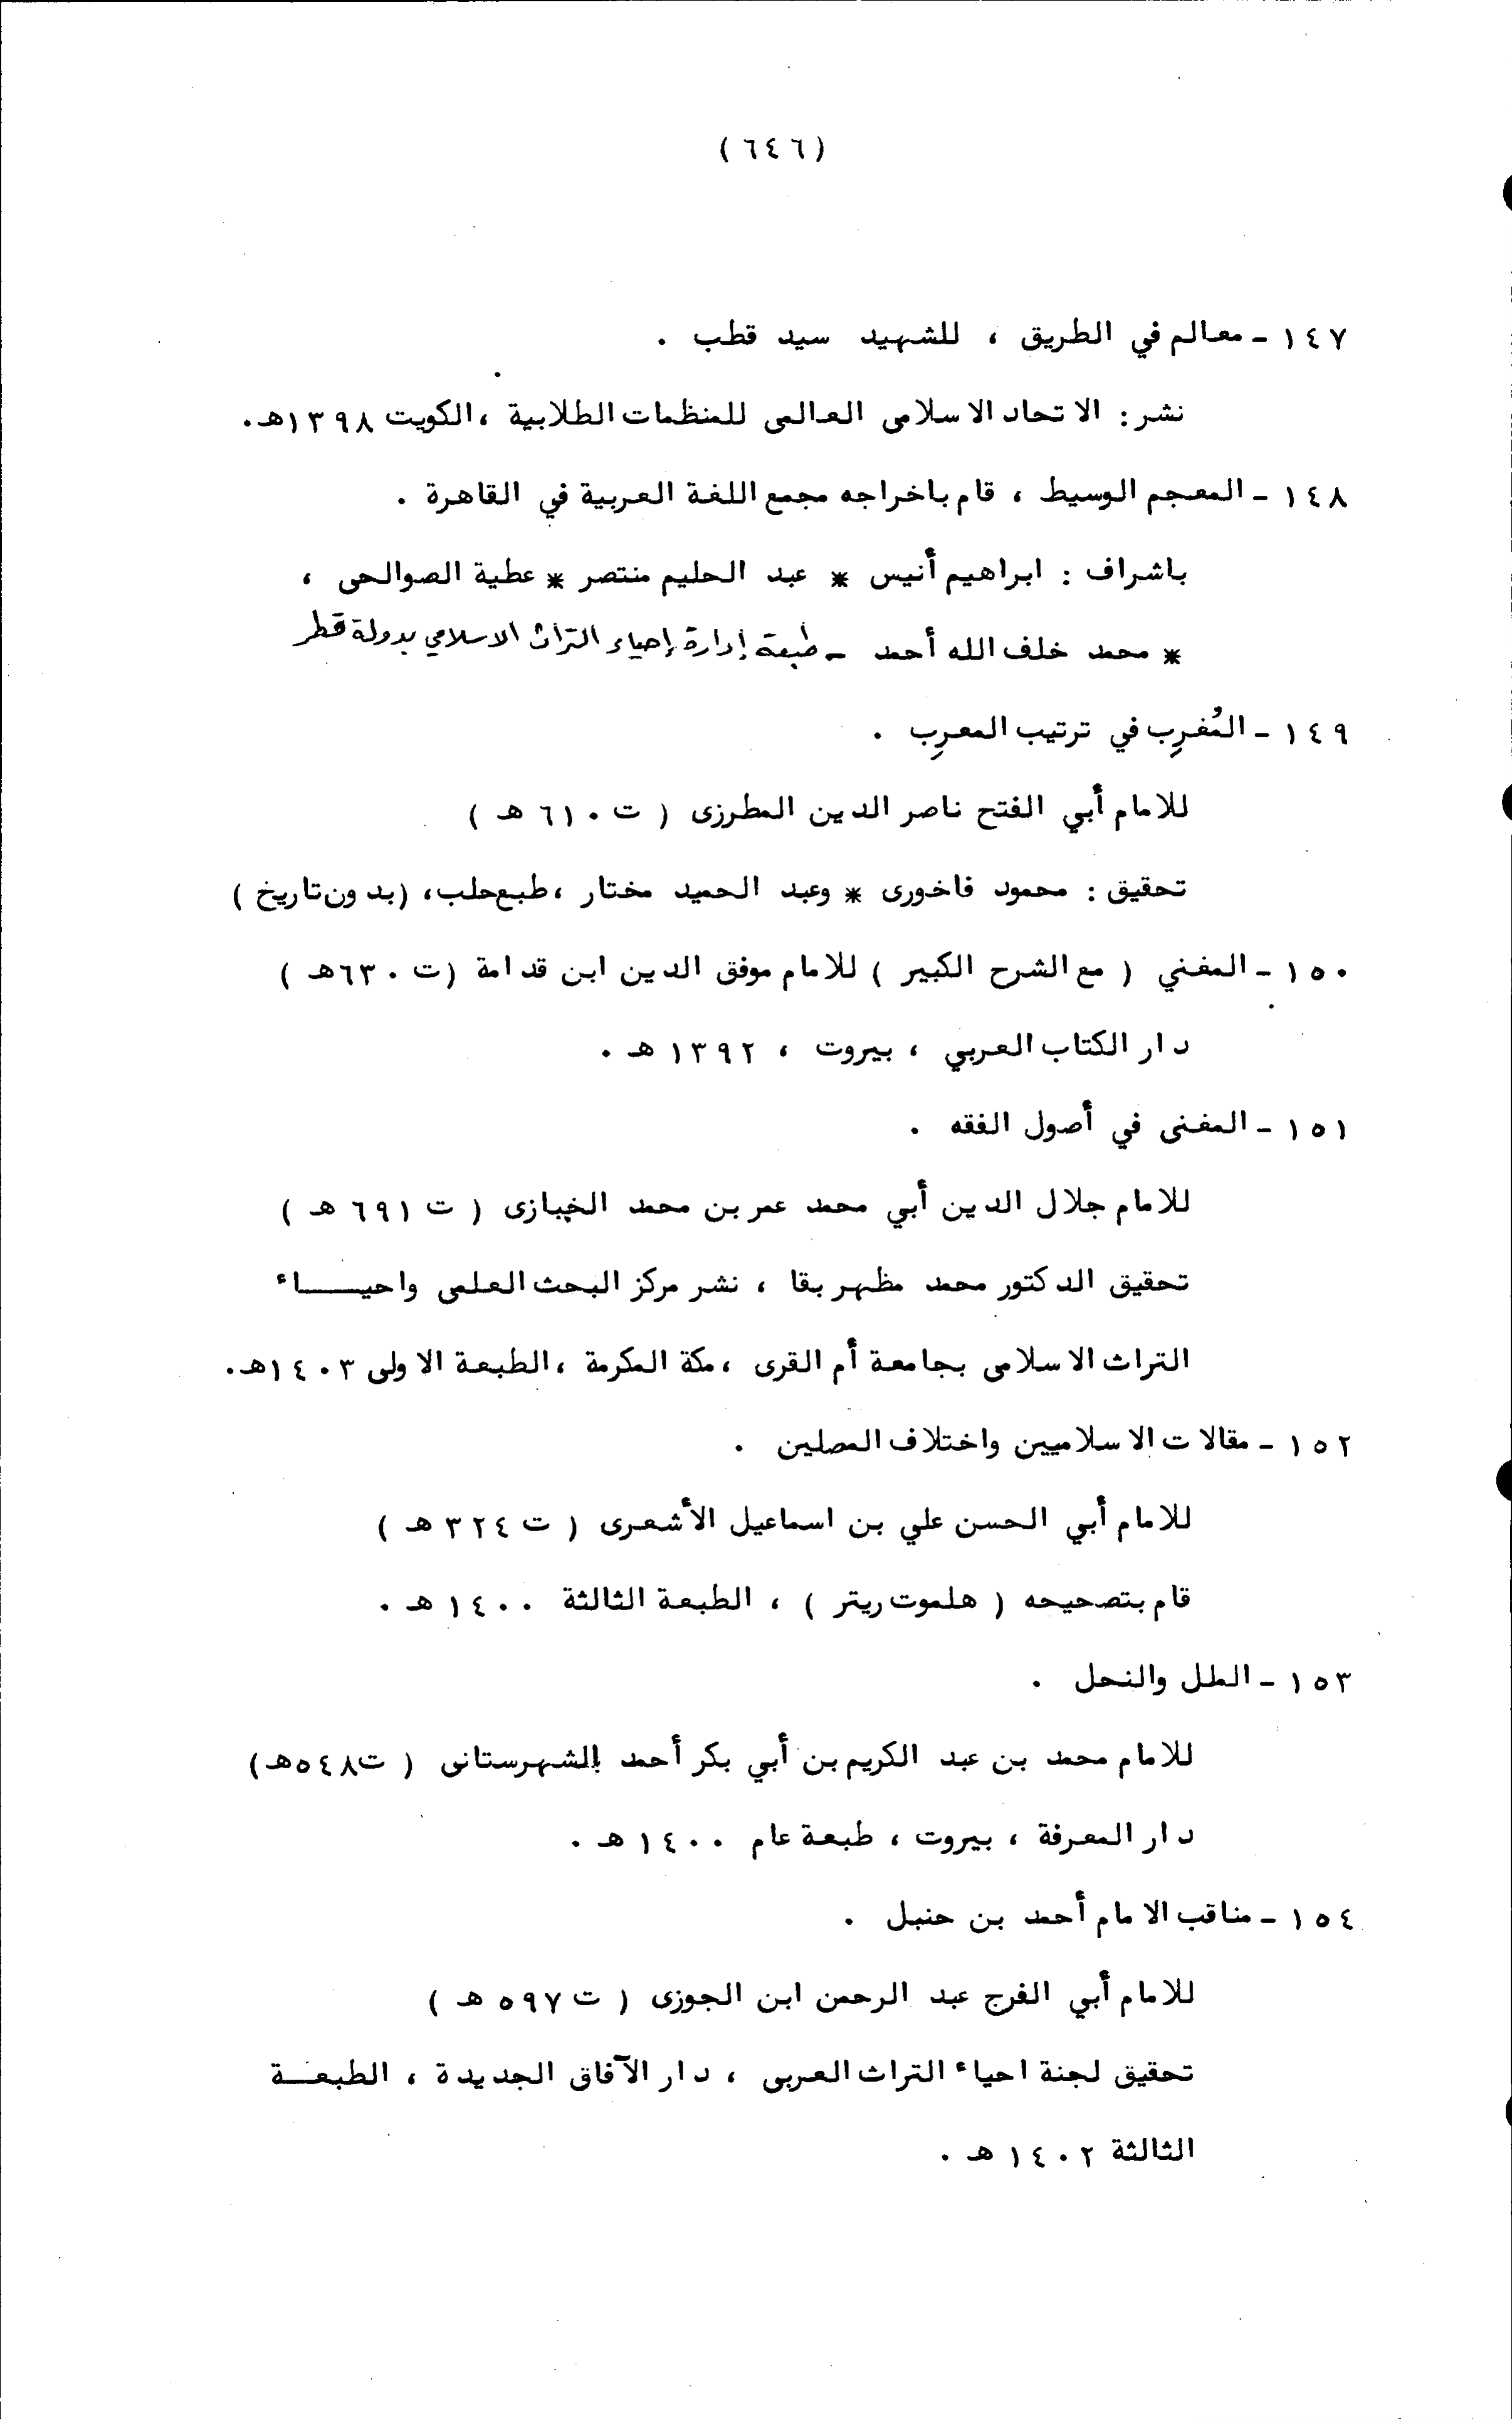 (٦٤٦)
١٤٧ - معالم في الطريق ، للشهيد سيد قطب .
نشر : الاتحاد الاسلامى العالمى للمنظمات الطلابية ، الكويت ١٣٩٨هـ.
١٤٨ - المعجم الوسيط ، قام باخراجه مجمع اللغة العربية في القاهرة .
باشراف : ابراهيم أنيس * عبد الحليم منتصر * عطية الصوالحى ،
* محمد خلف الله أحمد - طبعة إدارة إحياء التراث الاسلامي بدولة قطر
١٤٩ - المُغرِب في ترتيب المعرِب .
للامام أبي الفتح ناصر الدين المطرزى ( ت ٦١٠ هـ )
تحقيق : محمود فاخورى * وعبد الحميد مختار ، طبع حلب ، (بدون تاريخ )
١٥٠ - المغني ( مع الشرح الكبير ) للامام موفق الدين ابن قدامة (ت ٦٣٠هـ )
دار الكتاب العربي ، بيروت ، ١٣٩٢ هـ .
١٥١ - المغنى في أصول الفقه .
للامام جلال الدين أبي محمد عمر بن محمد الخبازى ( ت ٦٩١ هـ )
تحقيق الدكتور محمد مظهر بقا ، نشر مركز البحث العلمى واحيـــاء
التراث الاسلامى بجامعة أم القرى ، مكة المكرمة ، الطبعة الاولى ١٤٠٣هـ.
١٥٢ - مقالات الاسلاميين واختلاف المصلين .
للامام أبي الحسن علي بن اسماعيل الأشعرى ( ت ٣٢٤ هـ )
قام بتصحيحه ( هلموت ريتر ) ، الطبعة الثالثة ١٤٠٠ هـ .
١٥٣ - الملل والنحل .
للامام محمد بن عبد الكريم بن أبي بكر أحمد الشهرستانى ( ت٥٤٨هـ)
دار المعرفة ، بيروت ، طبعة عام ١٤٠٠ هـ .
١٥٤ - مناقب الامام أحمد بن حنبل .
للامام أبي الفرج عبد الرحمن ابن الجوزى ( ت ٥٩٧ هـ )
تحقيق لجنة احياء التراث العربى ، دار الآفاق الجديدة ، الطبعــة
الثالثة ١٤٠٢ هـ .